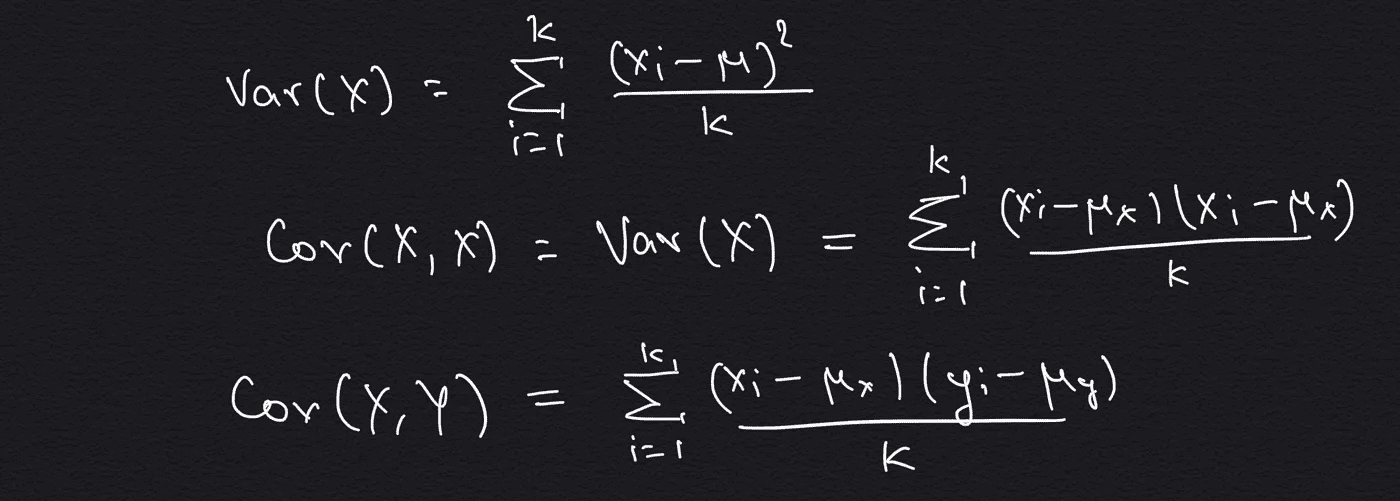 Var(X) = \sum_{i=1}^{k} \frac{(x_i - \mu)^2}{k}
Cov(X, X) = Var(X) = \sum_{i=1}^{k} \frac{(x_i - \mu_x)(x_i - \mu_x)}{k}
Cov(X, Y) = \sum_{i=1}^{k} \frac{(x_i - \mu_x)(y_i - \mu_y)}{k}